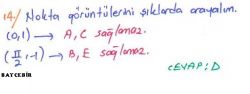 14/ Nokta görüntülerini şıklarda arayalım.
(0,1) → A, C sağlamaz.
(π/2, -1) → B, E sağlamaz.
CEVAP: D
BAYCEBİR